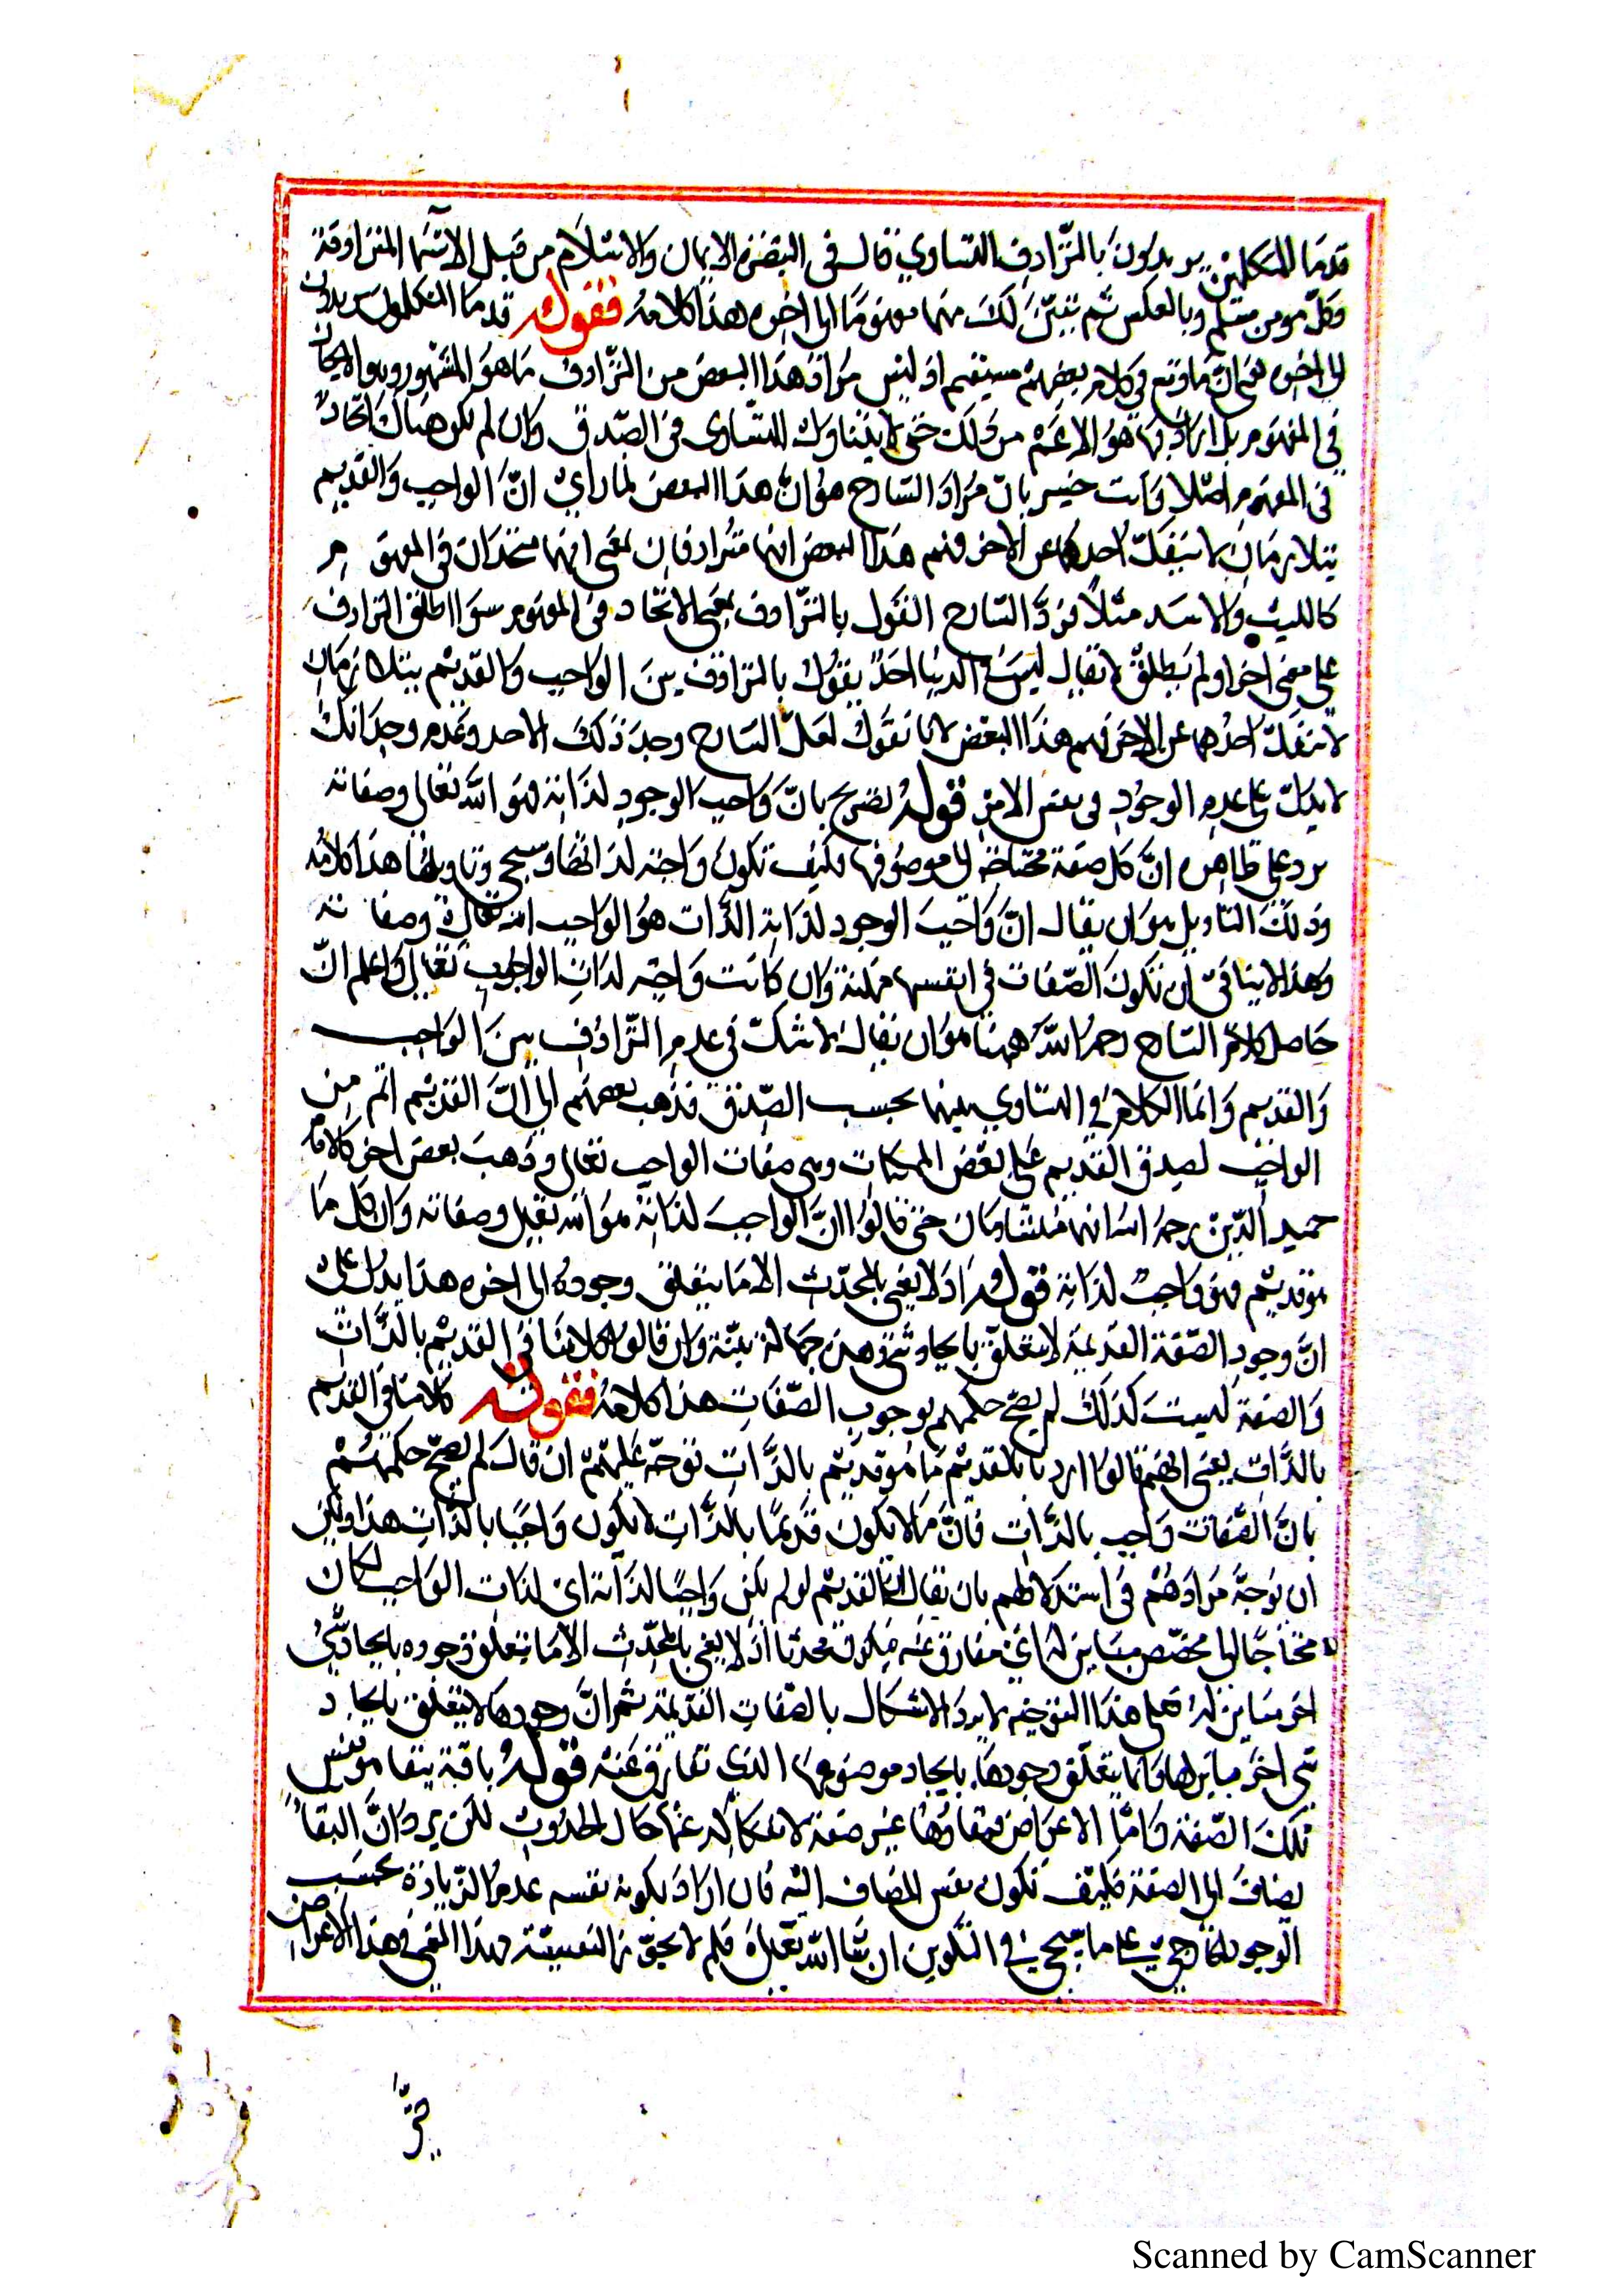 قدما المتكلمين يريدون بالترادف التساوي قال في التبصرة الايمان والاسلام من قبيل الاسما المترادفة
وكل مومن مسلم وبالعكس ثم تبين لك منهما مفهوما الى اخره هذا كلامه فقوله قدما المتكلمون يريدون
الى اخره يعني ان ما وقع في كلام بعضهم مستقيم اذ ليس مراد هذا البعض من الترادف ما هو المشهور وهو الاتحاد
في المفهوم بل اراد بها هو الاعم من ذلك حتى يتناول التساوي في الصدق وان لم يكن هناك اتحاد
في المفهوم اصلا وانت خبير بان مراد الشارح هو ان هذا البعض لما راي ان الواجب والقديم
يتلازمان لا ينفك احدهما عن الاخر فهم هذا البعض انهما مترادفان بمعنى انهما متحدان في المفهوم
كالليث والاسد مثلا فرد الشارح القول بالترادف بمعنى الاتحاد في المفهوم سوا اطلق الترادف
على معنى اخر او لم يطلق لا يقال ليس في الدنيا احد يقول بالترادف بين الواجب والقديم يتلازمان
لا ينفك احدهما عن الاخر فهم هذا البعض لانا نقول لعل الشارح وجد ذلك الاحد وعدم وجدانك
لا يدل على عدم الوجود في نفس الامر قوله تصريح بان واجب الوجود لذاته هو الله تعالى وصفاته
يرد على ظاهره ان كل صفة محتاجة الى موصوفها فكيف تكون واجبة لذاتها وسيجي وتاويلها هذا كلامه
وذلك التاويل هو ان يقال ان واجب الوجود لذاته الذات هو الواجب الله تعالى وصفاته
وهذا لا ينافي ان تكون الصفات في انفسها ممكنة وان كانت واجبة لذات الواجب تعالى واعلم ان
حاصل كلام الشارح رحمه الله ههنا هو ان يقال لا شك في عدم الترادف بين الواجب
والقديم وانما الكلام في التساوي بينهما بحسب الصدق فذهب بعضهم الى ان القديم اعم من
الواجب لصدق القديم على بعض الممكنات وهي صفات الواجب تعالى وذهب بعض اخر كالامام
حميد الدين رحمه الله انهما متساويان حتى قالوا ان الواجب لذاته هو الله تعالى وصفاته وان كل ما
هو قديم فهو واجب لذاته قوله اذ لا يعني بالمحدث الا ما يتعلق وجوده الى اخره هذا يدل على
ان وجود الصفة القديمة لا يتعلق بايجاد شي وهذه جهالة بينة وان قالوا كلامنا في القديم بالذات
والصفة ليست كذلك لم يصح حكمهم بوجوب الصفات هذا كلامه فقوله كلامنا في القديم
بالذات يعني انهم قالوا اردنا بالقديم ما هو قديم بالذات توجه عليهم ان قال لم يصح حكمهم
بان الصفات واجب بالذات فان ما لا يكون قديما بالذات لا يكون واجبا بالذات هذا ويمكن
ان يوجه مرادهم في استدلالهم بان يقال ان القديم لو لم يكن واجبا لذاته اي لذات الواجب لكان
محتاجا الى مخصص مباين له اي مفارق عنه فيكون محدثا اذ لا يعني بالمحدث الا ما يتعلق وجوده بايجاد شي
اخر مباين له فعلى هذا التوجيه لا يرد الاشكال بالصفات القديمة ثم ان وجودها لا يتعلق بايجاد
شي اخر مباين لها وانما يتعلق وجودها بايجاد موصوفها الذي تفارق عنه قوله باقية ببقا هو نفس
تلك الصفة واما الاعراض فبقاوها غير صفة لانفكاكه عنها حال الحدوث لكن يرد ان البقا
يضاف الى الصفة فكيف تكون نفس المضاف اليه فان اراد بكونه نفسه عدم الزيادة بحسب
الوجود الخارجي على ما سيجي في التكوين ان شا الله تعالى فلم لا يجوز النفسية بهذا المعنى في هذا الاعراض